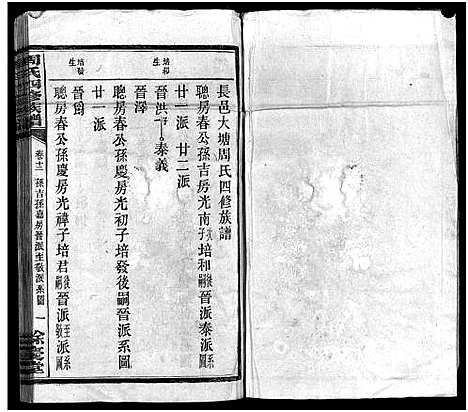 長邑大塘周氏四修族譜
聰房春公孫吉房光南子培和後嗣晉派泰派系圖
廿一派 廿二派
培和生
晉洪 泰義
晉澤
聰房春公孫慶房光初子培發後嗣晉派系圖
廿一派
培發生
晉
聰房春公孫慶房光禕子培君後嗣晉派至敬派系
周氏四修族譜
卷十二 孫吉孫嘉房晉派至敬派系圖 一
餘慶堂